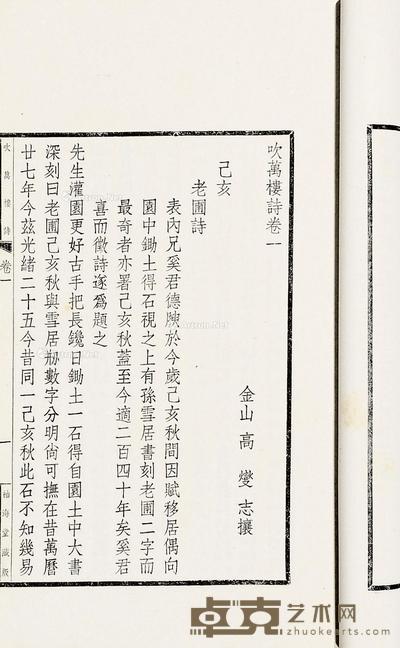 吹萬樓詩卷一
金山 高 燮 志攘
己亥
老圃詩
表內兄奚君德腴於今歲己亥秋間因賦移居偶向
園中鋤土得石視之上有孫雪居書刻老圃二字而
最奇者亦署己亥秋蓋至今適二百四十年矣奚君
喜而徵詩遂爲題之
先生灌園更好古手把長鑱日鋤土一石得自園土中大書
深刻曰老圃己亥秋與雪居刱數字分明尙可撫在昔萬曆
廿七年今茲光緒二十五今昔同一己亥秋此石不知幾易
吹萬樓詩
卷一
一
袖海堂藏版
卓克艺术网
zhuokearts.com